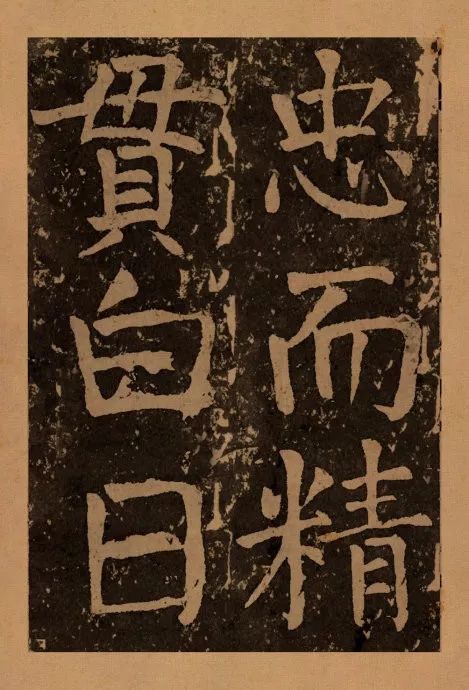 忠而精
貫白日